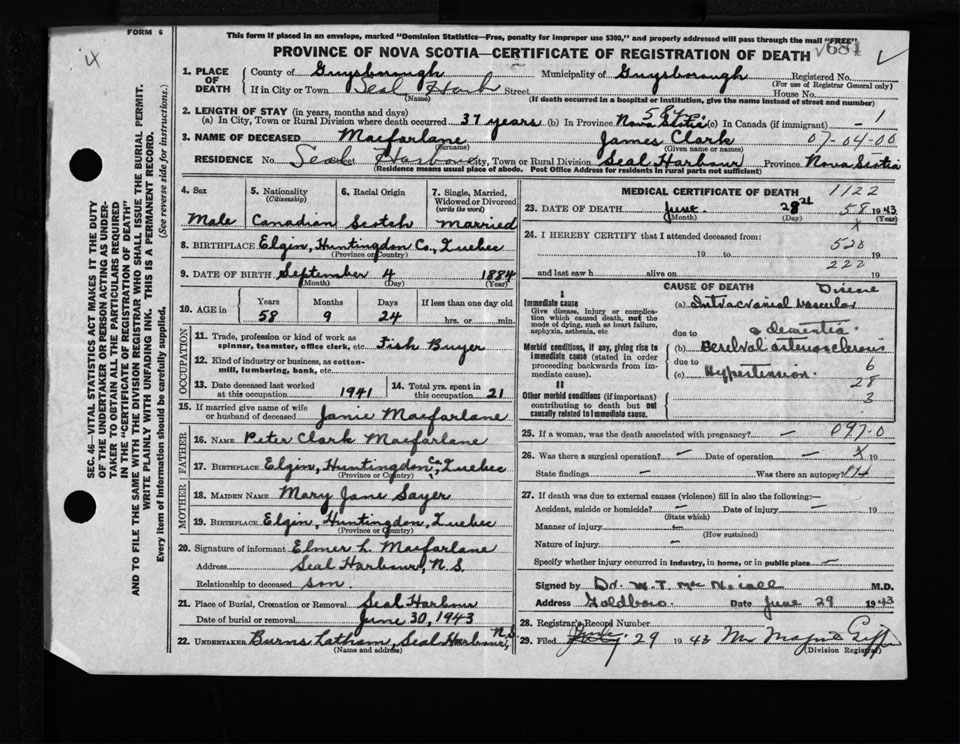 FORM 6
This form if placed in an envelope, marked "Dominion Statistics—Free, penalty for improper use $300," and properly addressed will pass through the mail "FREE"
PROVINCE OF NOVA SCOTIA—CERTIFICATE OF REGISTRATION OF DEATH
1. PLACE OF DEATH
County of Guysborough Municipality of Guysborough Registered No.
(For use of Registrar General only)
If in City or Town Seal Harb Street House No.
(Name) (If death occurred in a hospital or institution, give the name instead of street and number)
2. LENGTH OF STAY (in years, months and days)
(a) In City, Town or Rural Division where death occurred 37 years (b) In Province Nova Scotia (c) In Canada (if immigrant) - 1
3. NAME OF DECEASED Macfarlane James Clark 07-04-00
(Surname) (Given name or names)
RESIDENCE No. Seal Street Harbour City, Town or Rural Division Seal Harbour Province Nova Scotia
(Residence means usual place of abode. Post Office Address for residents in rural parts not sufficient)
4. Sex 5. Nationality (Citizenship) 6. Racial Origin 7. Single, Married, Widowed or Divorced (write the word)
Male Canadian Scotch Married
8. BIRTHPLACE Elgin, Huntingdon Co., Quebec
(Province or Country)
9. DATE OF BIRTH September 4 1884
(Month) (Day) (Year)
10. AGE in Years Months Days If less than one day old
58 9 24 hrs. or min.
OCCUPATION
11. Trade, profession or kind of work as spinner, teamster, office clerk, etc. Fish Buyer
12. Kind of industry or business, as cotton-mill, lumbering, bank, etc.
13. Date deceased last worked at this occupation 1941 14. Total yrs. spent in this occupation 21
15. If married give name of wife or husband of deceased Janie Macfarlane
FATHER
16. NAME Peter Clark Macfarlane
17. BIRTHPLACE Elgin, Huntingdon Co., Quebec
(Province or Country)
MOTHER
18. MAIDEN NAME Mary Jane Sayer
19. BIRTHPLACE Elgin, Huntingdon, Quebec
(Province or Country)
20. Signature of informant Elmer L. Macfarlane
Address Seal Harbour, N.S.
Relationship to deceased son.
21. Place of Burial, Cremation or Removal Seal Harbour
Date of burial or removal June 30, 1943
22. UNDERTAKER Burns Latham, Seal Harbour, N.S.
(Name and address)
MEDICAL CERTIFICATE OF DEATH 1122
23. DATE OF DEATH June 28 58 1943
(Month) (Day) (Year)
24. I HEREBY CERTIFY that I attended deceased from: x
19 to 528 19
and last saw h alive on 222 19
CAUSE OF DEATH
I
Immediate cause
Give disease, injury or complication which caused death, not the mode of dying, such as heart failure, asphyxia, asthenia, etc
(a) Intracranial Vascular Disease
due to
Morbid conditions, if any, giving rise to immediate cause (stated in order proceeding backwards from immediate cause).
dementia
(b) arteriosclerosis
due to 6
(c) Hypertension. 28
II
Other morbid conditions (if important) contributing to death but not causally related to immediate cause.
3
25. If a woman, was the death associated with pregnancy? — 097-0
26. Was there a surgical operation? — Date of operation — x 19
State findings — Was there an autopsy?
27. If death was due to external causes (violence) fill in also the following:—
Accident, suicide or homicide? — Date of injury — 19
(State which)
Manner of injury —
(How sustained)
Nature of injury —
Specify whether injury occurred in industry, in home, or in public place —
Signed by Dr. M.T. M.D.
Address Goldboro. Date June 29 1943
28. Registrar's Record Number
29. Filed 29 1943
(Division Registrar)
SEC. 46—VITAL STATISTICS ACT MAKES IT THE DUTY
OF THE UNDERTAKER OR PERSON ACTING AS UNDER-
TAKER TO OBTAIN ALL THE PARTICULARS REQUIRED
IN THE "CERTIFICATE OF REGISTRATION OF DEATH"
AND TO FILE THE SAME WITH THE DIVISION REGISTRAR WHO SHALL ISSUE THE BURIAL PERMIT.
WRITE PLAINLY WITH UNFADING INK. THIS IS A PERMANENT RECORD.
Every item of information should be carefully supplied. (See reverse side for instructions.)